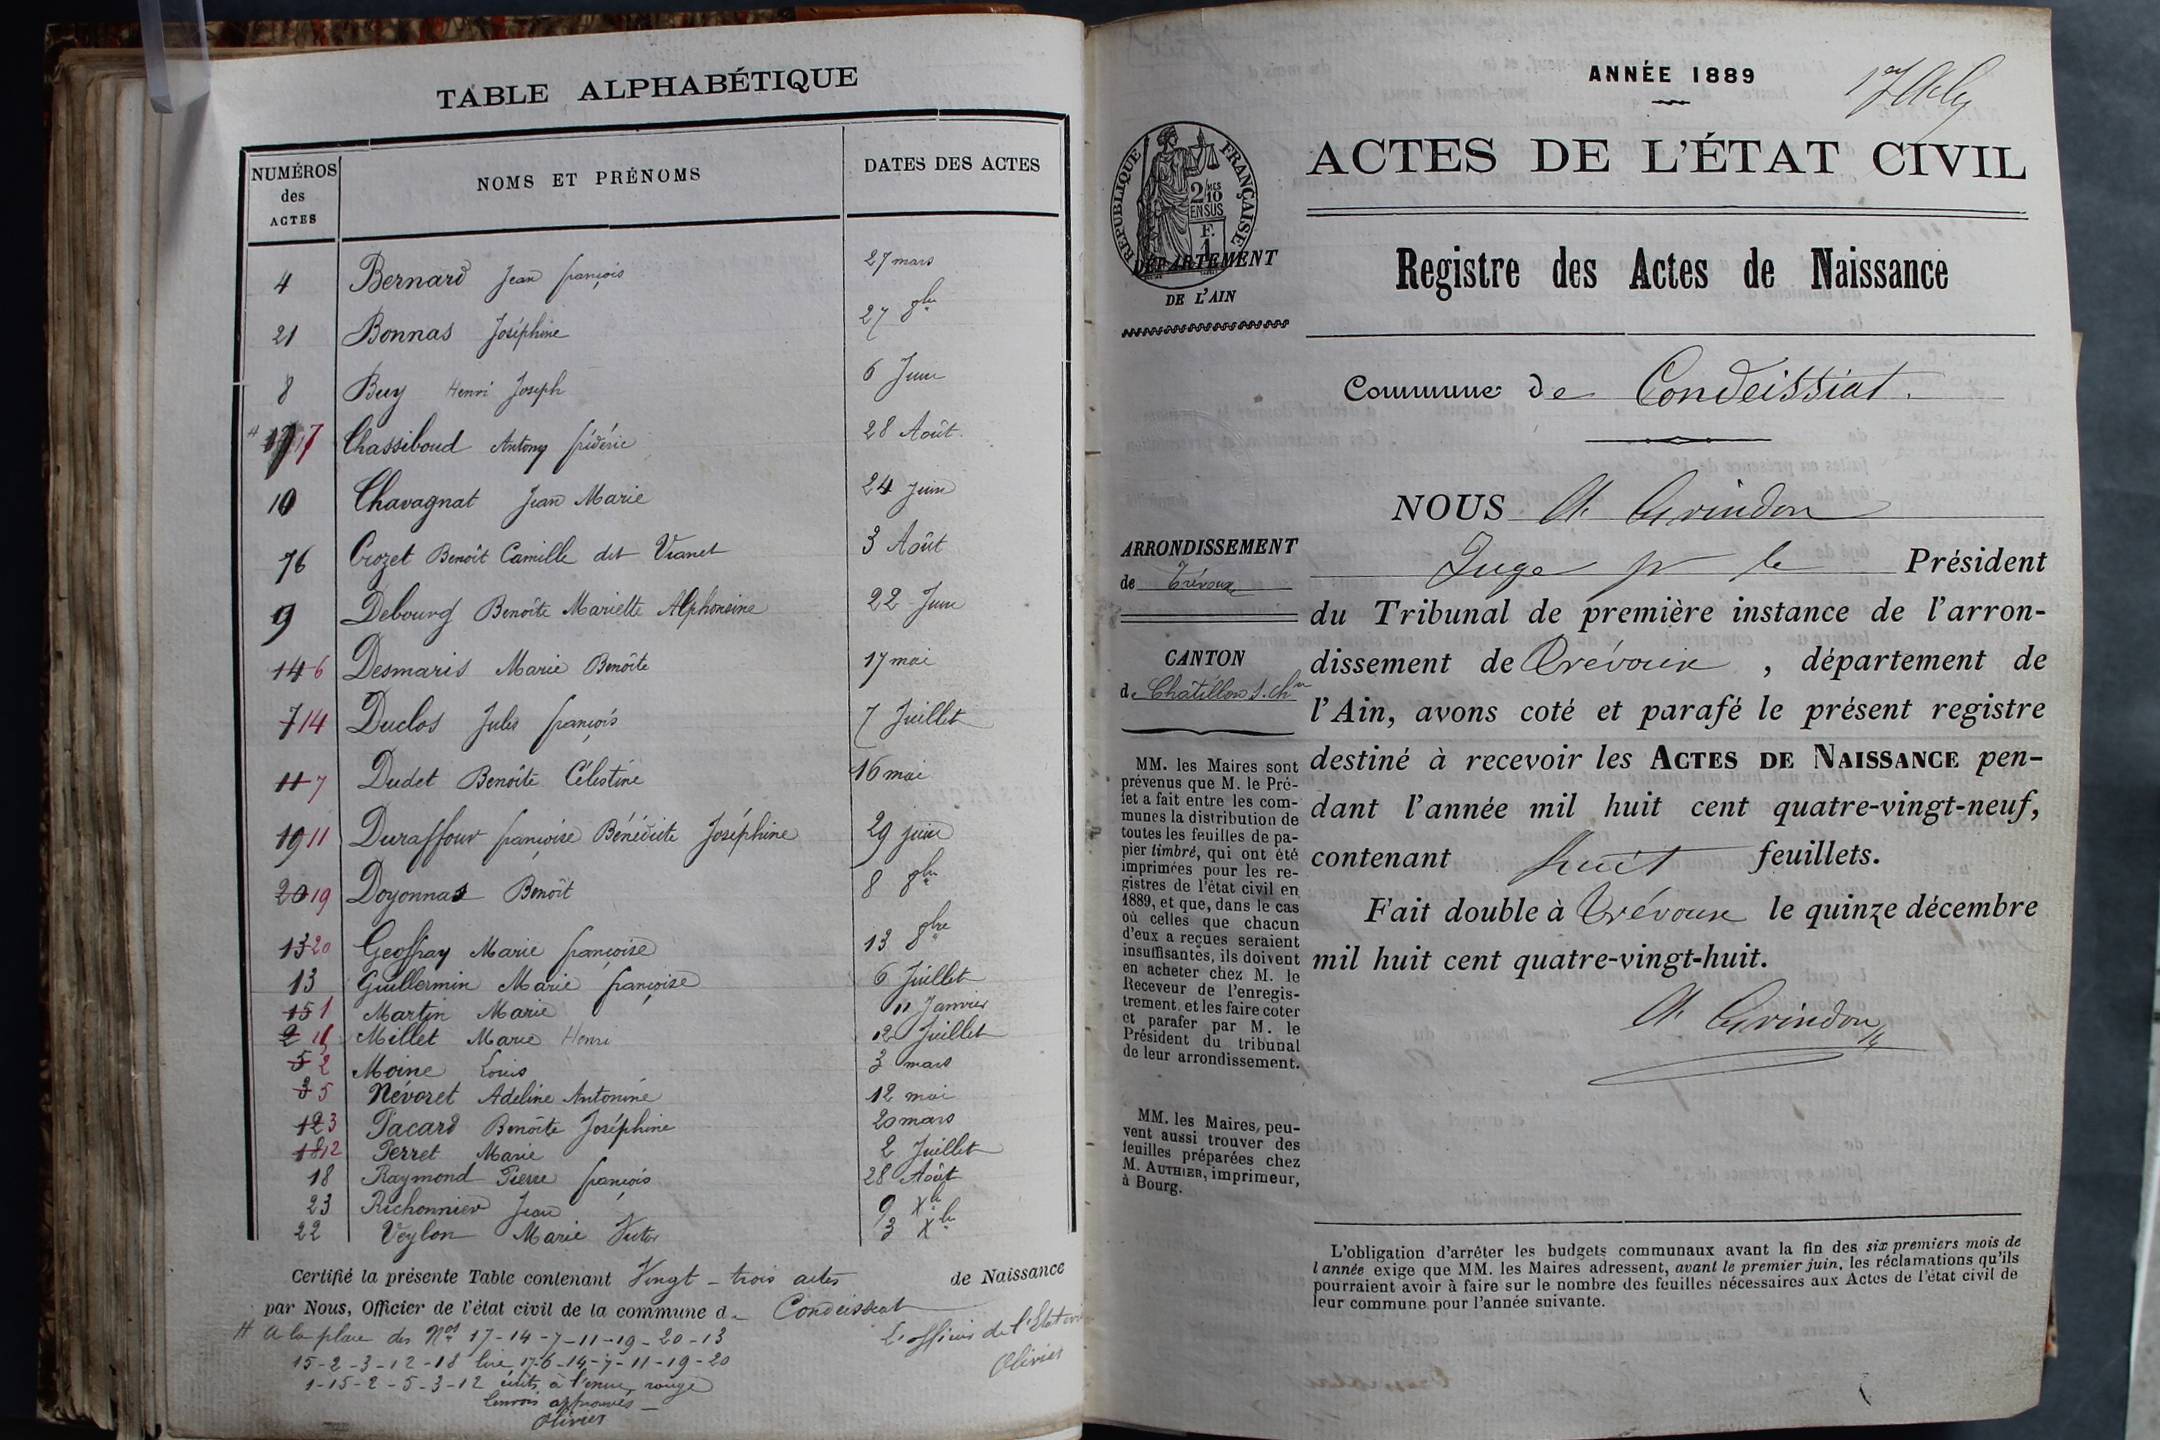 TABLE ALPHABÉTIQUE
NUMÉROS des ACTES
NOMS ET PRÉNOMS
DATES DES ACTES
4 Bernard Jean françois 27 mars
21 Bonnas Joséphine 27 8bre
8 Buy Henri Joseph 6 Juin
17 Chassiboud Antony frédéric 28 Août.
10 Chavagnat Jean Marie 24 Juin
16 Crozet Benoît Camille dit Vianet 3 Août
9 Debourg Benoîte Mariette Alphonsine 22 Juin
14 6 Desmaris Marie Benoîte 17 mai
7 14 Duclos Jules françois 7 Juillet
11 7 Dudet Benoîte Célestine 16 mai
19 11 Duraffour françoise Bénédicte Joséphine 29 juin
20 19 Doyonnas Benoît 8 8bre
13 20 Geoffray Marie françoise 13 8bre
13 Guillermin Marie françoise 6 Juillet
15 1 Martin Marie 11 Janvier
2 15 Millet Marie Henri 12 Juillet
5 2 Moine Louis 3 mars
3 5 Névoret Adeline Antonine 12 mai
12 3 Pacard Benoîte Joséphine 20 mars
18 12 Perret Marie 2 Juillet
18 Raymond Pierre françois 28 Août
23 Richonnier Jean 9 Xbre
22 Veylon Marie Victor 3 Xbre
Certifié la présente Table contenant Vingt-trois actes de Naissance
par Nous, Officier de l'état civil de la commune de Condeissiat
L'officier de l'Etat civil
Olivier
A la place des Nos 17-14-7-11-19-20-13
15-2-3-12-18 lire 17-6-14-7-11-19-20
1-15-2-5-3-12 écrits à l'encre rouge
Renvois approuvés
Olivier
ANNÉE 1889
ACTES DE L'ÉTAT CIVIL
RÉPUBLIQUE FRANÇAISE
2/10 EN SUS
F. 1
DÉPARTEMENT
DE L'AIN
Registre des Actes de Naissance
Commune de Condeissiat.
NOUS A. Grindon
ARRONDISSEMENT
de Trévoux
CANTON
de Châtillon s. Chne
MM. les Maires sont
prévenus que M. le Pré-
fet a fait entre les com-
munes la distribution de
toutes les feuilles de pa-
pier timbré, qui ont été
imprimées pour les re-
gistres de l'état civil en
1889, et que, dans le cas
où celles que chacun
d'eux a reçues seraient
insuffisantes, ils doivent
en acheter chez M. le
Receveur de l'enregis-
trement et les faire coter
et parafer par M. le
Président du tribunal
de leur arrondissement.
MM. les Maires, peu-
vent aussi trouver des
feuilles préparées chez
M. AUTHIER, imprimeur,
à Bourg.
Juge pr le Président
du Tribunal de première instance de l'arron-
dissement de Trévoux, département de
l'Ain, avons coté et parafé le présent registre
destiné à recevoir les ACTES DE NAISSANCE pen-
dant l'année mil huit cent quatre-vingt-neuf,
contenant huit feuillets.
Fait double à Trévoux le quinze décembre
mil huit cent quatre-vingt-huit.
A. Grindon
L'obligation d'arrêter les budgets communaux avant la fin des six premiers mois de
l'année exige que MM. les Maires adressent, avant le premier juin, les réclamations qu'ils
pourraient avoir à faire sur le nombre des feuilles nécessaires aux Actes de l'état civil de
leur commune pour l'année suivante.